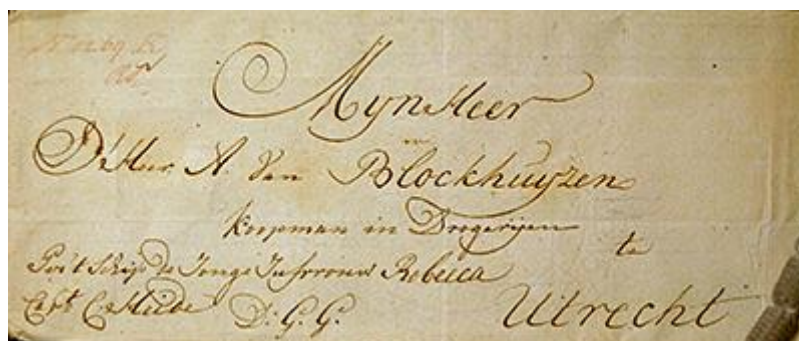 MynHeer
D'Heer A. Van Blockhuyzen
Koopman in Drogerijen
te
Pr't Schip de Jonge Juffrouw Rebecca
Capt. C.
D: G. G.
Utrecht